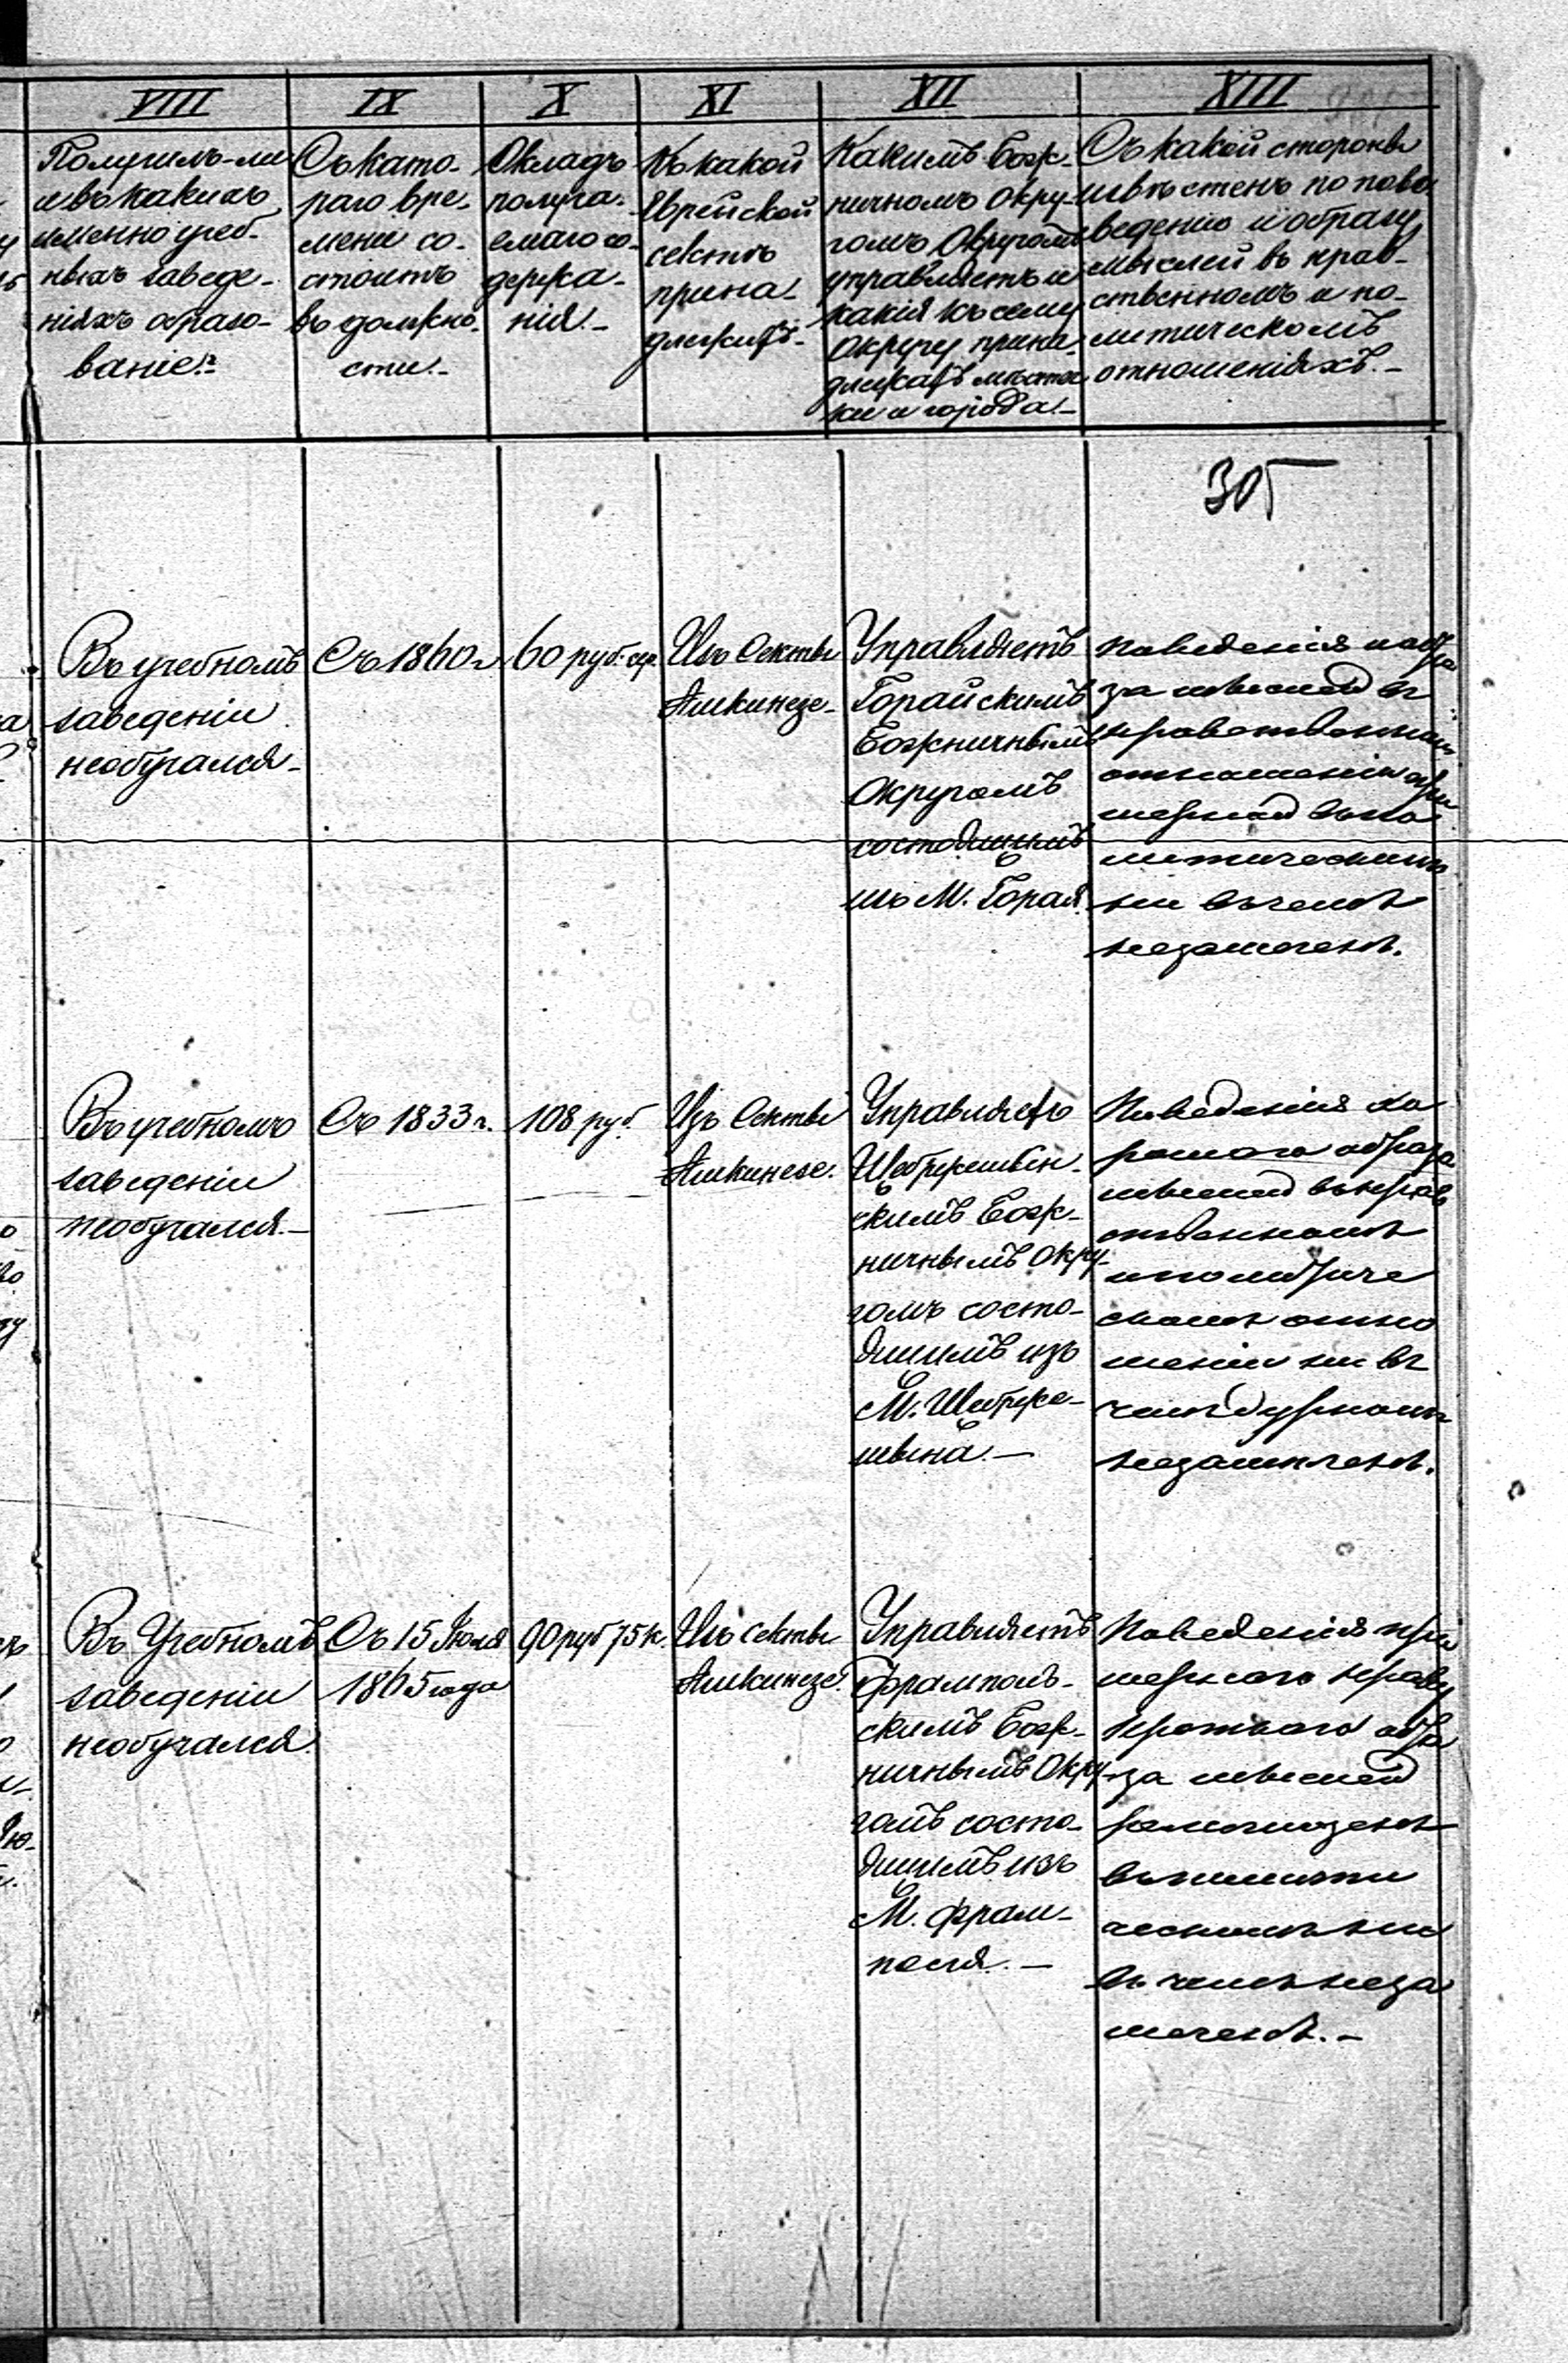 VIII
IX
X
XI
XII
XIII
Получилъ-ли
и въ какихъ
именно учеб-
ныхъ заведе-
ніяхъ образо-
ваніе.-
Съ кото-
раго вре-
мени со-
стоитъ
въ должно-
сти.-
Окладъ
получа-
емаго со-
держа-
нія.-
Къ какой
Еврейской
сектѣ
прина-
длежитъ.-
Какимъ Бож-
ничномъ Окру-
гомъ Округомъ
управляетъ и
какія къ сему
Округу прина-
длежатъ мѣстеч-
ки и города.-
Съ какой стороны
извѣстенъ по пове-
ведению и образу
мыслей въ нрав-
ственномъ и по-
литическомъ
отношеніяхъ.-
305
Въ учебномъ
заведеніи
необучался-
Съ 1860 г.
60 руб. сер.
Изъ Секты
Ашкинезе-
Управляетъ
Горайскимъ
Божничнымъ
Округомъ
состоящимъ
изъ М. Горая.
поведенія и обра
за мыслей въ
нравственномъ
отношеніи при
мерной въ по
литическимъ
ни въ чемъ
незамеченъ.
Въ учебномъ
заведеніи
необучался.-
Съ 1833 г.
108 руб.
Изъ Секты
Ашкинезе.
Управляетъ
Щебржешин-
скимъ Бож-
ничнымъ Окру-
гомъ состо-
ящимъ изъ
М. Щебрже-
шина.-
Поведенія хо
рошаго образа
мыслей въ нрав
ственномъ
и политиче
скомъ отно
шеніи ни въ
чемъ дурномъ
незамѣченъ.
Въ Учебномъ
заведеніи
необучался.
Съ 15 Юля
1865 года
90 руб 75 к.
Изъ секты
Ашкинезе.
Управляетъ
Фрамполь-
скимъ Бож-
ничнымъ Окру-
гомъ состо-
ящимъ изъ
М. Фрам-
поля.-
Поведенія при
мернаго нраву
кроткаго обра
за мыслей
въ чемъ неза
меченъ.-